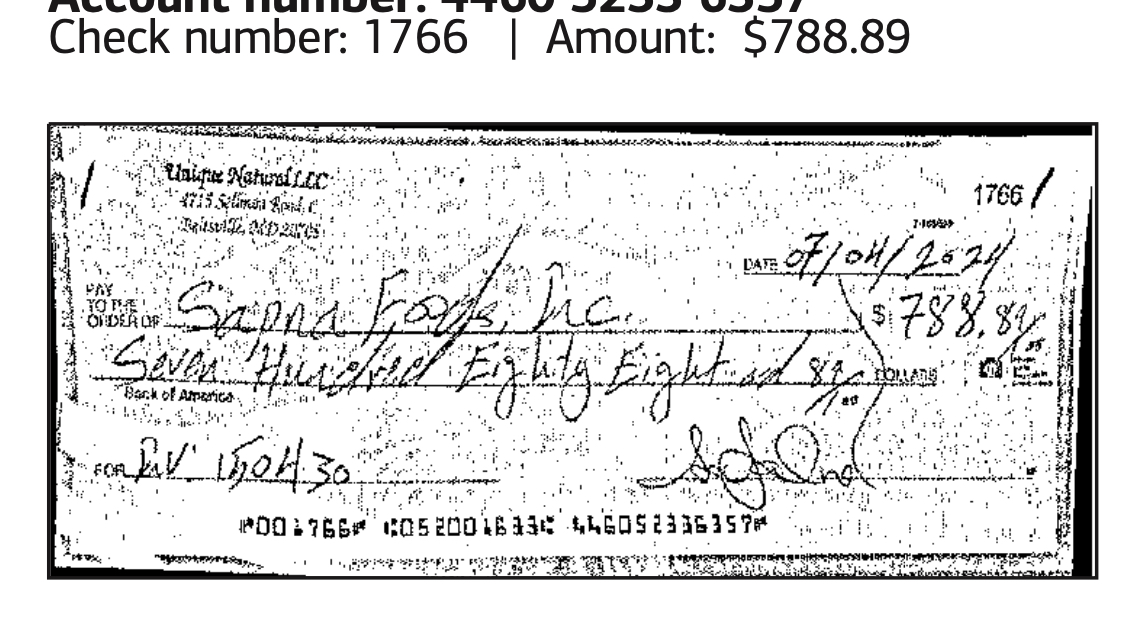 Account number: 4460 5233 6357
Check number: 1766 | Amount: $788.89
Unique Natural LLC
4715 Sellman Road
Beltsville, MD 20705
1766
DATE 07/04/2024
PAY
TO THE
ORDER OF Sapna Foods, Inc.
$ 788.89/
Seven Hundred Eighty Eight and 89/ DOLLARS
Bank of America
FOR INV 150430
⑈001766⑈ ⑆052001633⑆ 446052336357⑈